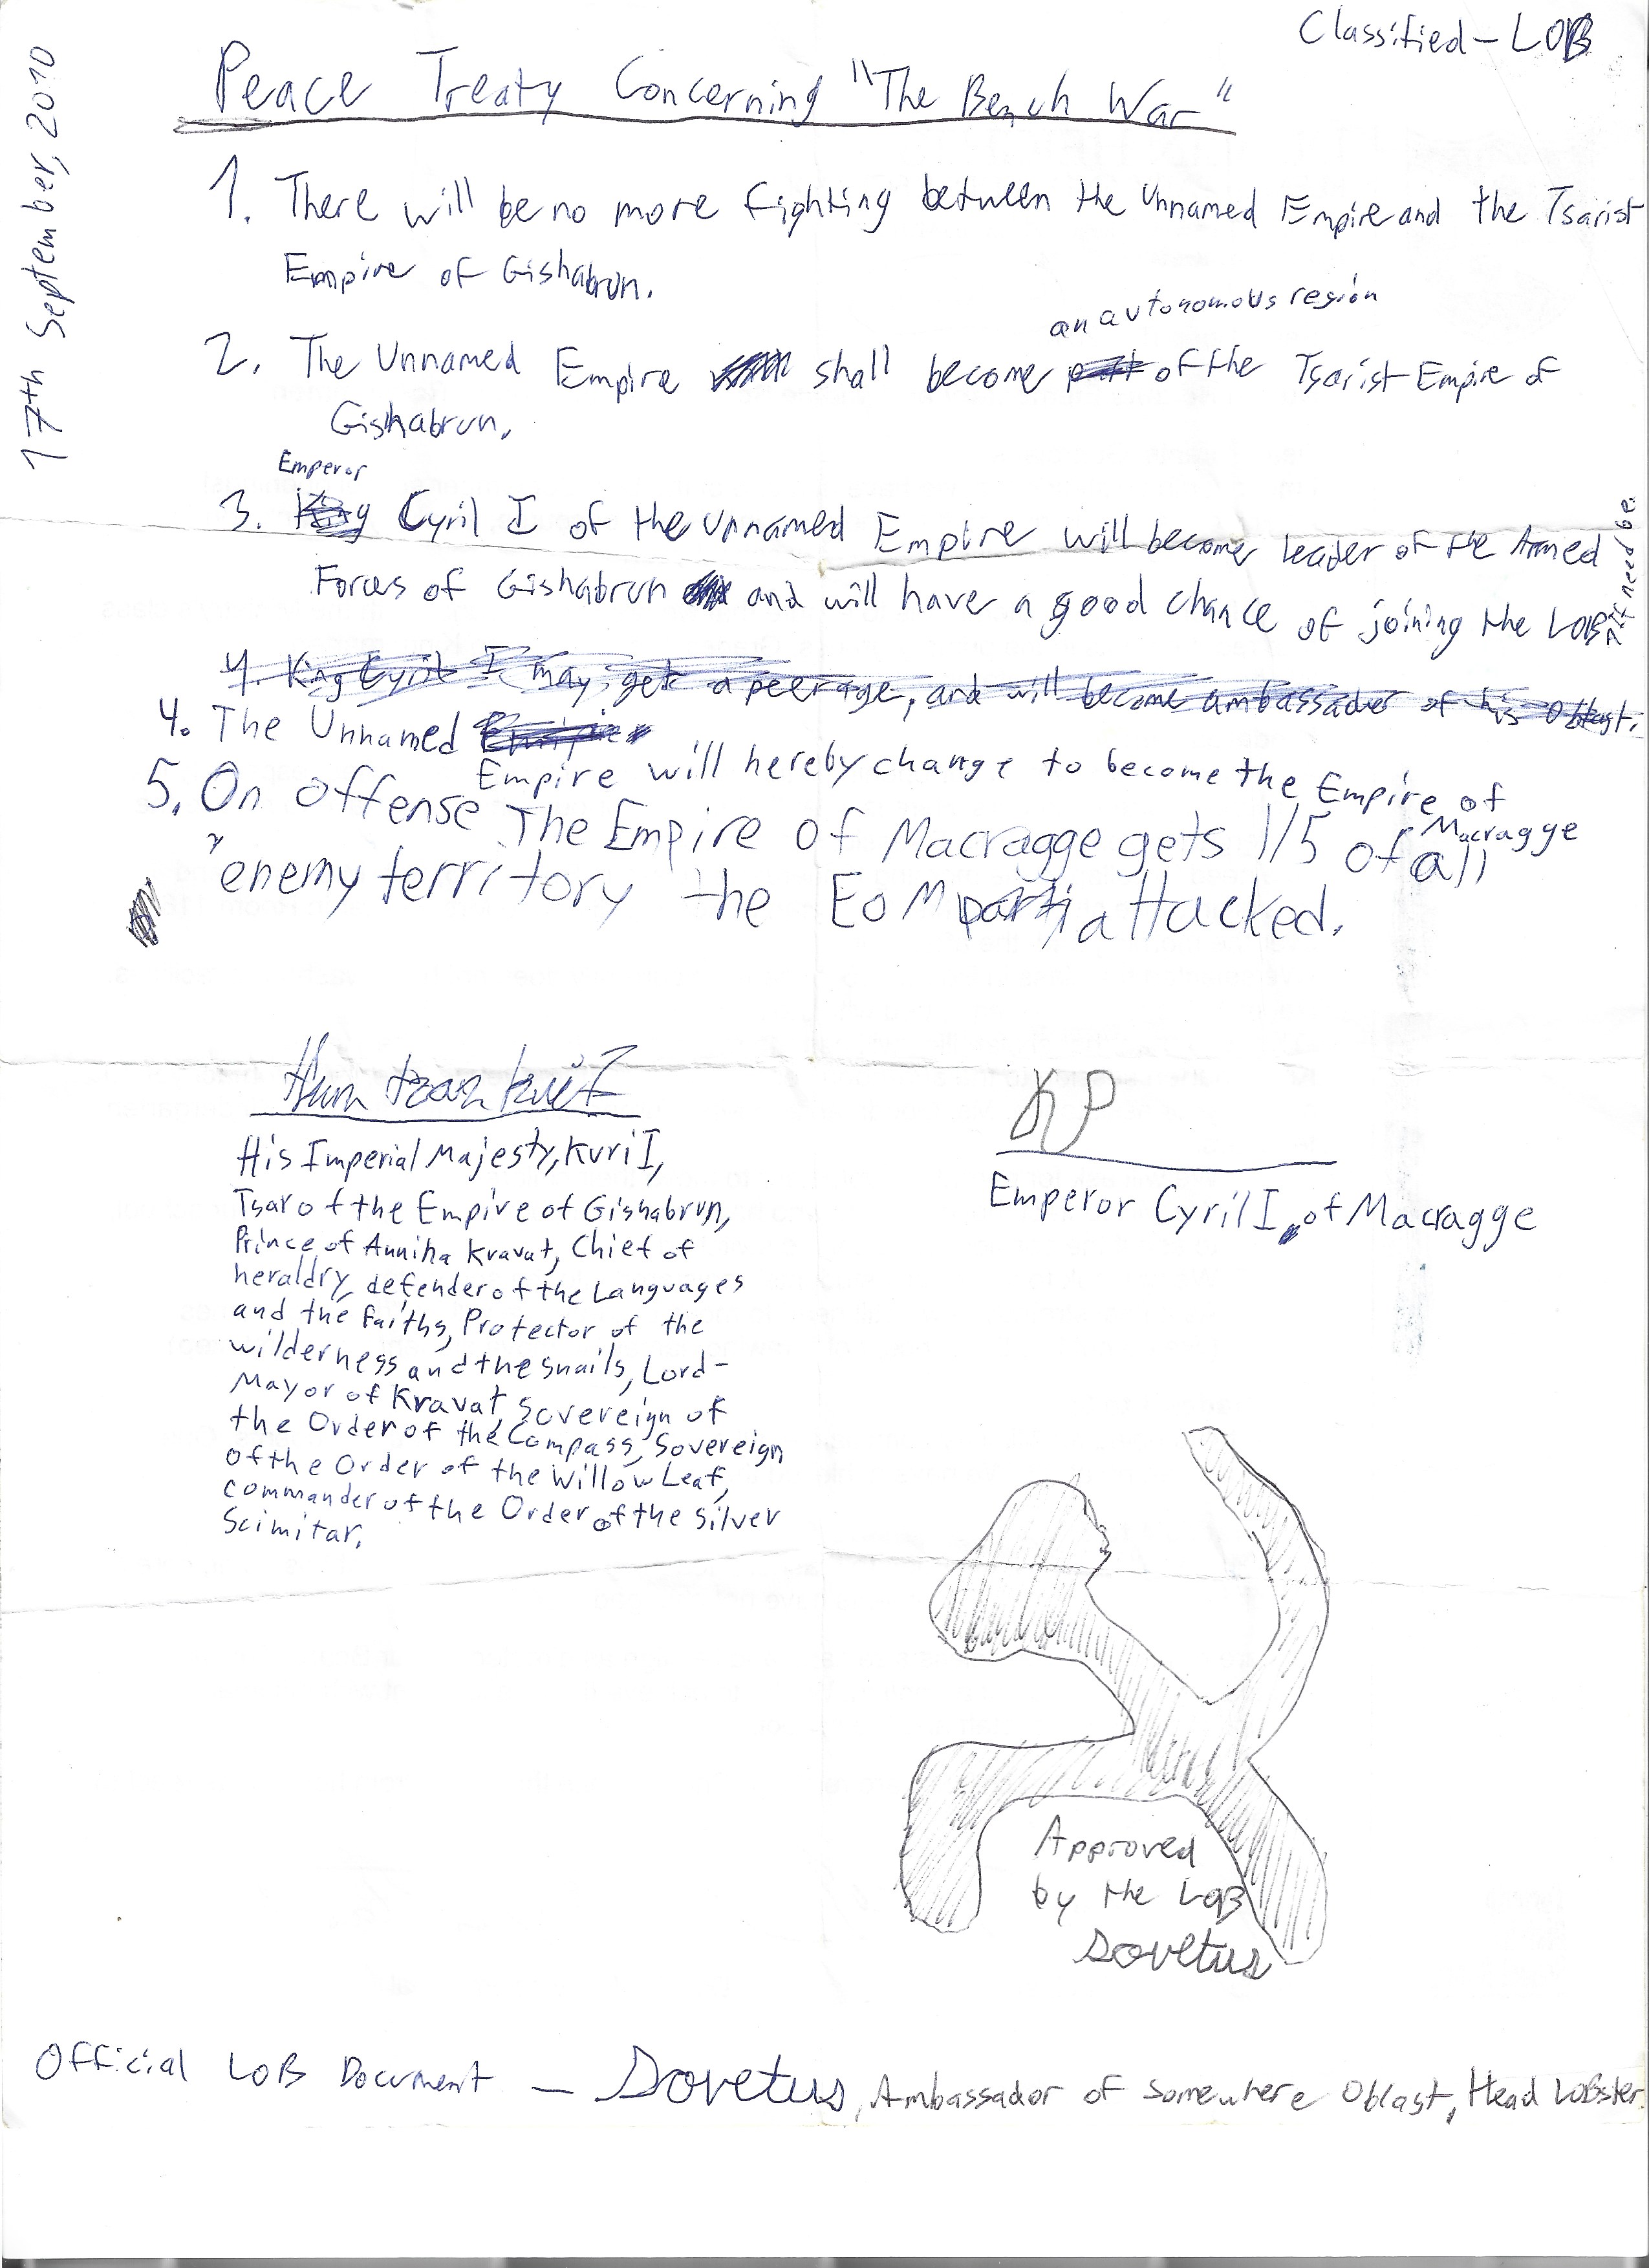 Classified – LOB
17th September, 2010
Peace Treaty Concerning "The Bench War"
1. There will be no more fighting between the Unnamed Empire and the Tsarist
Empire of Gishabrun.
an autonomous region
2. The Unnamed Empire shall become part of the Tsarist Empire of
Gishabrun.
Emperor
3. King Cyril I of the Unnamed Empire will become leader of the Armed
Forces of Gishabrun and will have a good chance of joining the LOB
if need be.
4. King Cyril I may get a peerage, and will become ambassador of his oblast.
4. The Unnamed Empire
Empire will hereby change to become the Empire of
Macragge
5. On offense The Empire of Macragge gets 1/5 of all
enemy territory the EoM attacked.
His Imperial Majesty, Kuri I,
Tsar of the Empire of Gishabrun,
Prince of Anniha Kravat, Chief of
heraldry, defender of the Languages
and the Faiths, Protector of the
wilderness and the snails, Lord-
Mayor of Kravat, Sovereign of
the Order of the Compass, Sovereign
of the Order of the Willow Leaf,
commander of the Order of the Silver
Scimitar.
KP
Emperor Cyril I of Macragge
Approved
by the LOB
Sovetus
Official LOB Document – Sovetus, Ambassador of Somewhere Oblast, Head LOBster